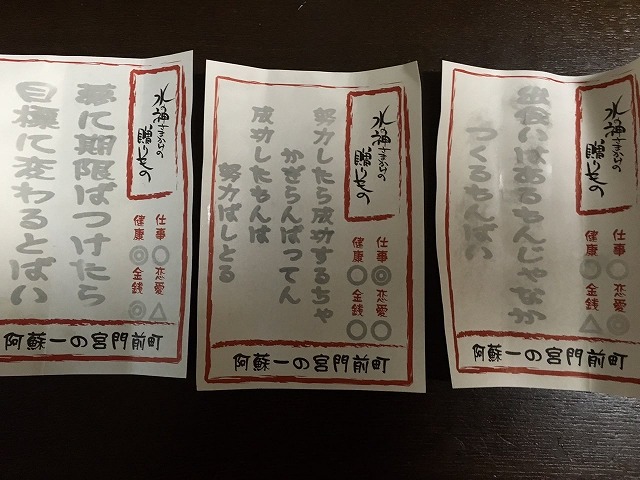 水神さまからの
贈りもの
仕事○ 恋愛△
健康◎ 金銭◎
夢に期限ばつけたら
目標に変わるとばい
阿蘇一の宮門前町
水神さまからの
贈りもの
仕事◎ 恋愛○
健康○ 金銭○
努力したら成功するちゃ
かぎらんばってん
成功したもんは
努力ばしとる
阿蘇一の宮門前町
水神さまからの
贈りもの
仕事○ 恋愛◎
健康○ 金銭△
出会いはあるもんじゃなか
つくるもんばい
阿蘇一の宮門前町